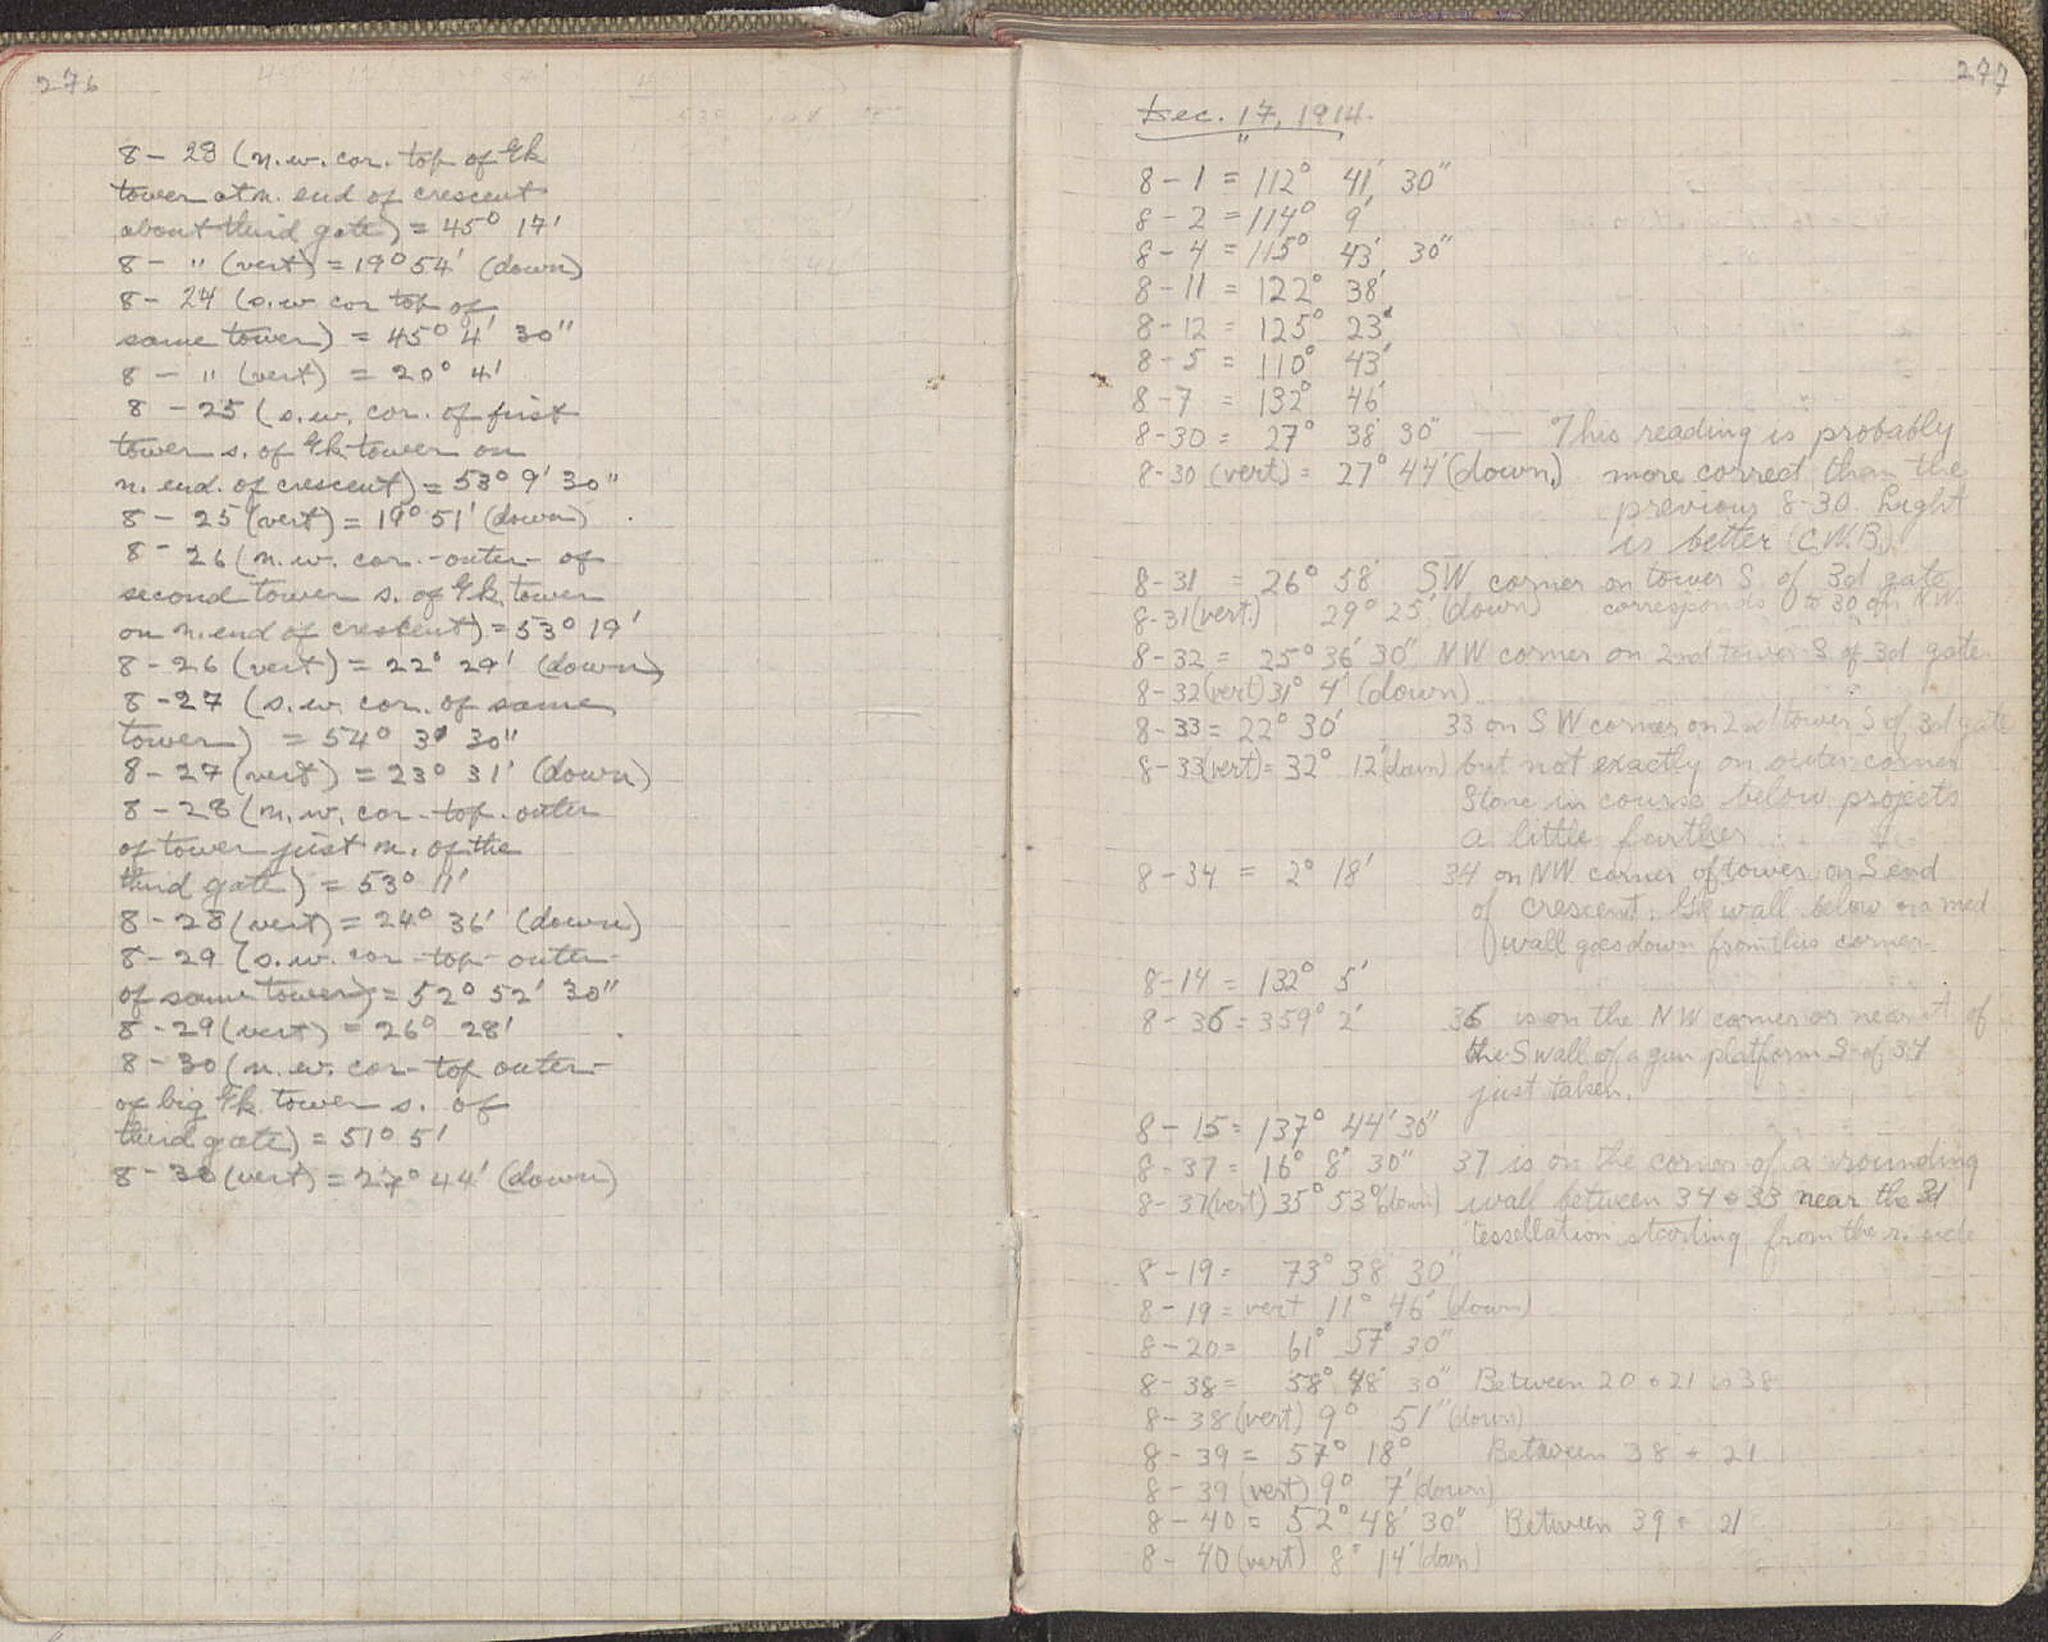 276
8 - 23 (n.w. cor. top of Gk
tower at n. end of crescent
about third gate) = 45° 17'
8 - " (vert) = 19° 54' (down)
8 - 24 (s.w cor top of
same tower) = 45° 4' 30"
8 - " (vert) = 20° 4'
8 - 25 (s.w. cor. of first
tower s. of Gk tower on
n. end. of crescent) = 53° 9' 30"
8 - 25 (vert) = 19° 51' (down)
8 - 26 (n.w. cor. - outer - of
second tower s. of Gk. tower
on n. end of crescent) = 53° 19'
8 - 26 (vert) = 22° 29' (down)
8 - 27 (s.w. cor. of same
tower) = 54° 3' 30"
8 - 27 (vert) = 23° 31' (down)
8 - 28 (n.w. cor - top - outer
of tower just n. of the
third gate) = 53° 11'
8 - 28 (vert) = 24° 36' (down)
8 - 29 (s.w. cor - top - outer -
of same tower) = 52° 52' 30"
8 - 29 (vert) = 26° 28'
8 - 30 (n.w. cor - top outer -
of big Gk tower s. of
third gate) = 51° 5'
8 - 30 (vert) = 27° 44' (down)
277
Dec. 17, 1914.
8 - 1 = 112° 41' 30"
8 - 2 = 114° 9'
8 - 4 = 115° 43' 30"
8 - 11 = 122° 38'
8 - 12 = 125° 23'
8 - 5 = 110° 43'
8 - 7 = 132° 46'
8 - 30 = 27° 38' 30" — This reading is probably
8 - 30 (vert) = 27° 44' (down) more correct than the
previous 8-30. Light
is better (C.N.B.)
8 - 31 = 26° 58' SW corner on tower S of 3d gate
8 - 31 (vert.) 29° 25' (down) corresponds to 30 on NW.
8 - 32 = 25° 36' 30" NW corner on 2nd tower S of 3d gate
8 - 32 (vert) 31° 4' (down)
8 - 33 = 22° 30' 33 on SW corner on 2nd tower S of 3d gate
8 - 33 (vert) = 32° 12' (down) but not exactly on outer corner
Stone in course below projects
a little farther
8 - 34 = 2° 18' 34 on NW corner of tower on S end
of crescent. Gk wall below or a med
wall goes down from this corner.
8 - 14 = 132° 5'
8 - 36 = 359° 2' 36 is on the NW corner or near it of
the S wall of a gun platform S of 34
just taken.
8 - 15 = 137° 44' 30"
8 - 37 = 16° 8' 30" 37 is on the corner of a rounding
8 - 37 (vert) 35° 53° (down) wall between 34 + 33 near the 3d
tessellation starting from the n. end
8 - 19 = 73° 38' 30"
8 - 19 = vert 11° 46' (down)
8 - 20 = 61° 57' 30"
8 - 38 = 58° 48' 30" Between 20 + 21 is 38
8 - 38 (vert) 9° 51" (down)
8 - 39 = 57° 18° Between 38 + 21
8 - 39 (vert) 9° 7' (down)
8 - 40 = 52° 48' 30" Between 39 + 21
8 - 40 (vert) 8° 14' (down)